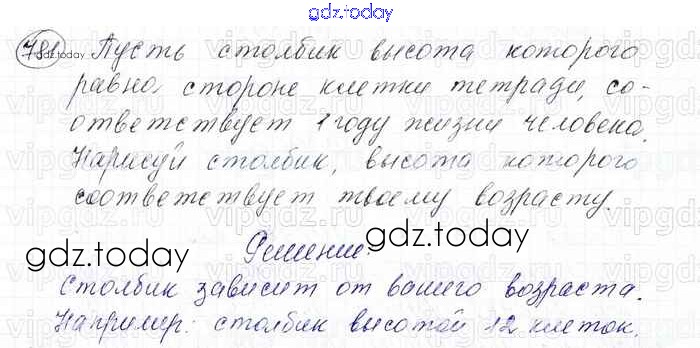 gdz.today
781 Пусть столбик высота которого
gdz.today
равно стороне клетки тетради, со-
ответствует 1 году жизни человека.
Нарисуй столбик, высота которого
соответствует твоему возрасту.
gdz.today Решение: gdz.today
Столбик зависит от вашего возраста.
Например: столбик высотой 12 клеток.